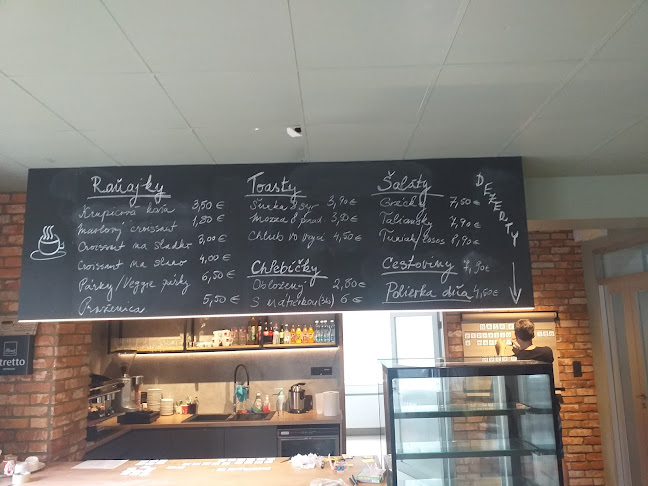 Raňajky
Krupicová kaša 3,50 €
Maslový croissant 1,80 €
Croissant na sladko 3,00 €
Croissant na slano 4,00 €
Párky/Veggie párky 6,50 €
Praženica 5,50 €
Toasty
Šunka & syr 3,90 €
Mozza & parad. 3,50 €
Chlieb vo vajci 4,50 €
Chlebíčky
Obložený 2,80 €
S nátierkou (3ks) 6 €
Šaláty
Grécky 7,50 €
Taliansky 7,90 €
Tuniak/losos 8,90 €
Cestoviny 7,90 €
Polievka dňa 4,50 €
DEZERTY
tretto